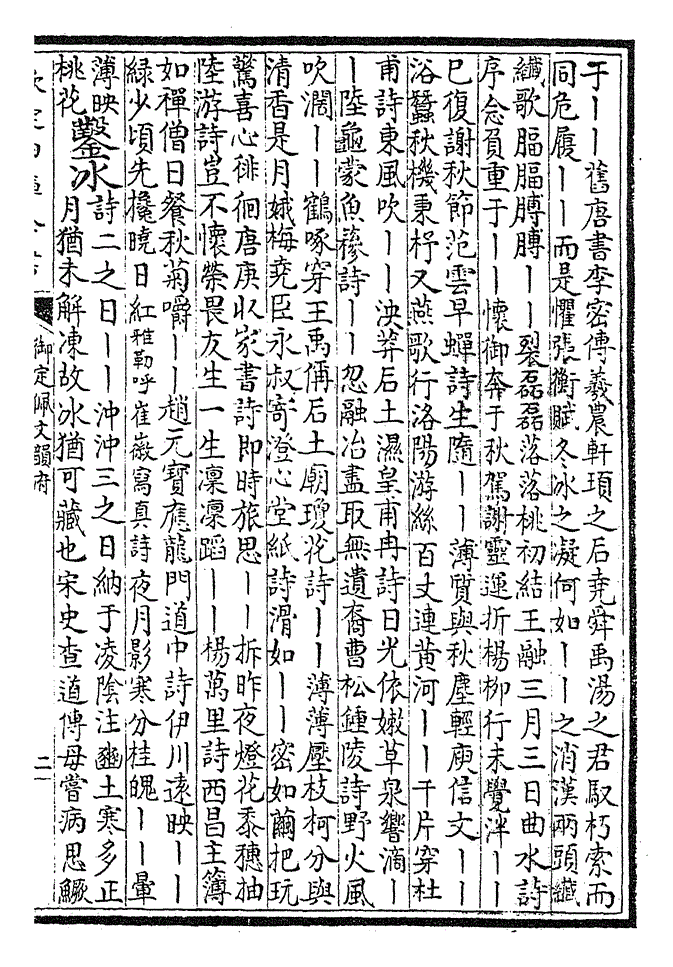 于丨丨舊唐書李密傳羲農軒頊之后堯舜禹湯之君馭朽索而
同危履丨丨而是懼張衡賦冬冰之凝何如丨丨之消漢兩頭纖
纖歌腷腷膊膊丨丨裂磊磊落落桃初結王融三月三日曲水詩
序念負重于丨丨懷御奔于秋駕謝靈運折楊柳行未覺泮丨丨
巳復謝秋節范雲早蟬詩生隨丨丨薄質與秋塵輕庾信文丨丨
浴蠶秋機秉杼又燕歌行洛陽游絲百丈連黃河丨丨千片穿杜
甫詩東風吹丨丨泱莽后土濕皇甫冉詩日光依嫩草泉響滴丨
丨陸龜蒙魚穇詩丨丨忽融冶盡取無遺裔曹松鍾陵詩野火風
吹濶丨丨鶴啄穿王禹偁后土廟瓊花詩丨丨薄薄壓枝柯分與
清香是月娥梅堯臣永叔寄澄心堂紙詩滑如丨丨密如繭把玩
驚喜心徘徊唐庚收家書詩即時旅思丨丨拆昨夜燈花黍穗抽
陸游詩豈不懷榮畏友生一生凜凜蹈丨丨楊萬里詩西昌主簿
如禪僧日餐秋菊嚼丨丨趙元寶應龍門道中詩伊川遠映丨丨
綠少頃先攙曉日紅雅勒呼崔嶽寫真詩夜月影寒分桂魄丨丨暈
薄映桃花
鑿冰
詩二之日丨丨沖沖三之日納于凌陰注豳土寒多正
月猶未解凍故冰猶可藏也宋史查道傳母嘗病思鱖
御定佩文韻府
二